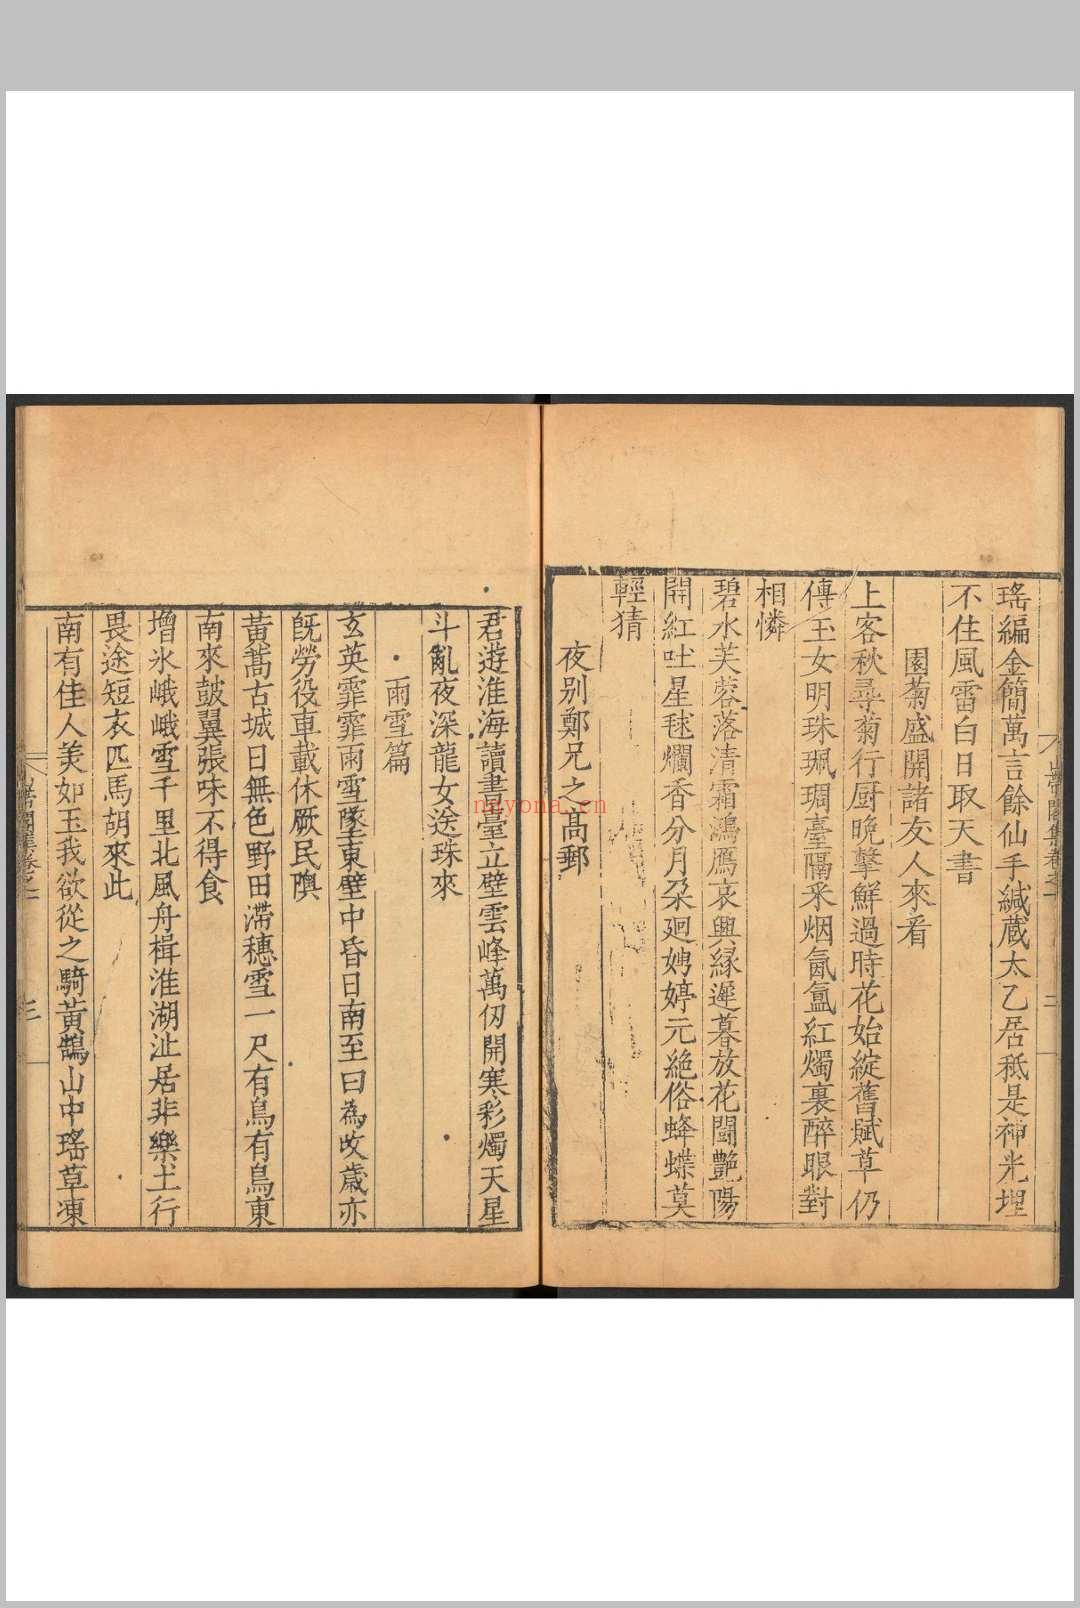 瑤編金簡萬言餘仙手緘蔵太乙居秪是神光埋
不住風雷白日取天書
園菊盛開諸友人來看
上客秋尋菊行厨晩擊鮮過時花始綻舊賦草仍
傳玉女明珠珮琱臺隔釆烟氤氳紅燭裏醉眼對
相憐
碧水芙蓉落清霜鴻鴈哀興緣遲暮放花鬪艶陽
開紅吐星毬爛香分月朶廻娉婷元絶俗蜂蝶莫
輕猜
夜别鄭兄之髙郵
君遊淮海讀書臺立壁雲峰萬仭開寒彩燭天星
斗亂夜深龍女送珠來
雨雪篇
玄英霏霏雨雪墜東壁中昏日南至曰為攺歲亦
旣勞役車載休厥民隩
黃蒿古城日無色野田滯穗雪一尺有鳥有鳥東
南來皷翼張咮不得食
增氷峨峨雪千里北風舟楫淮湖沚居非樂土行
畏途短衣匹馬胡來此
南有佳人美如玉我欲從之騎黃鵠山中瑤草凍
三
nayona.cn